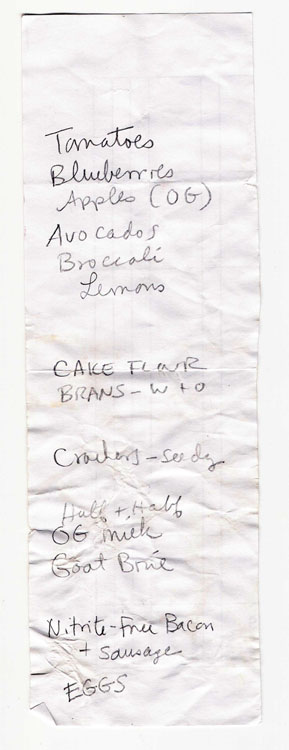 Tomatoes
Blueberries
Apples (OG)
Avocados
Broccoli
Lemons
CAKE FLOUR
BRANS - W + O
Crackers - seedy
Half + Half
OG milk
Goat Brie
Nitrite-Free Bacon
+ sausage
EGGS